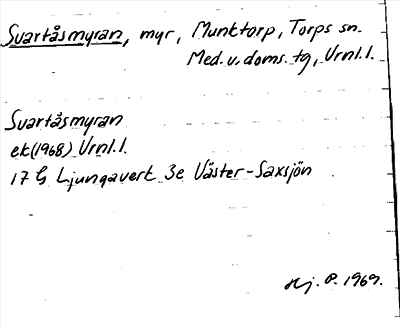 Svartåsmyran, myr, Munktorp, Torps sn.
Med. v. doms. tg, Vrnl.l.
Svartåsmyran
ek(1968) Vrnl.l.
17 G Ljungaverk 3e Väster-Saxsjön
Hj. P. 1969.